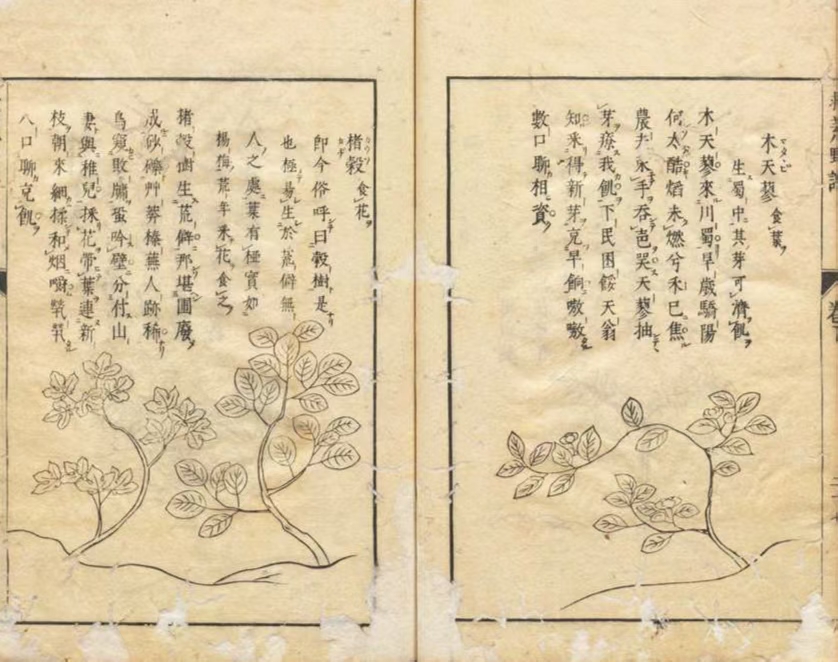 木天蓼 食葉
生蜀中其芽可濟飢
木天蓼來川蜀早歲驕陽
何太酷焰未燃兮禾已焦
農夫束手呑哭天蓼抽
芽療我飢下民困餒天翁
知采得新芽充早餉嗷嗷
數口聊相資
楮穀 食花
即今俗呼曰穀樹是
也極易生於荒僻無
人之處葉有椏實如
楊梅荒年采花食之
楮穀樹生荒僻那堪圃廢
成砂礫艸莽榛蕪人跡稀
鳥窺敗牖蛩吟壁分付山
妻與稚兒採花帶葉連新
枝朝來細揉和烟嚼煢煢
八口聊充飢